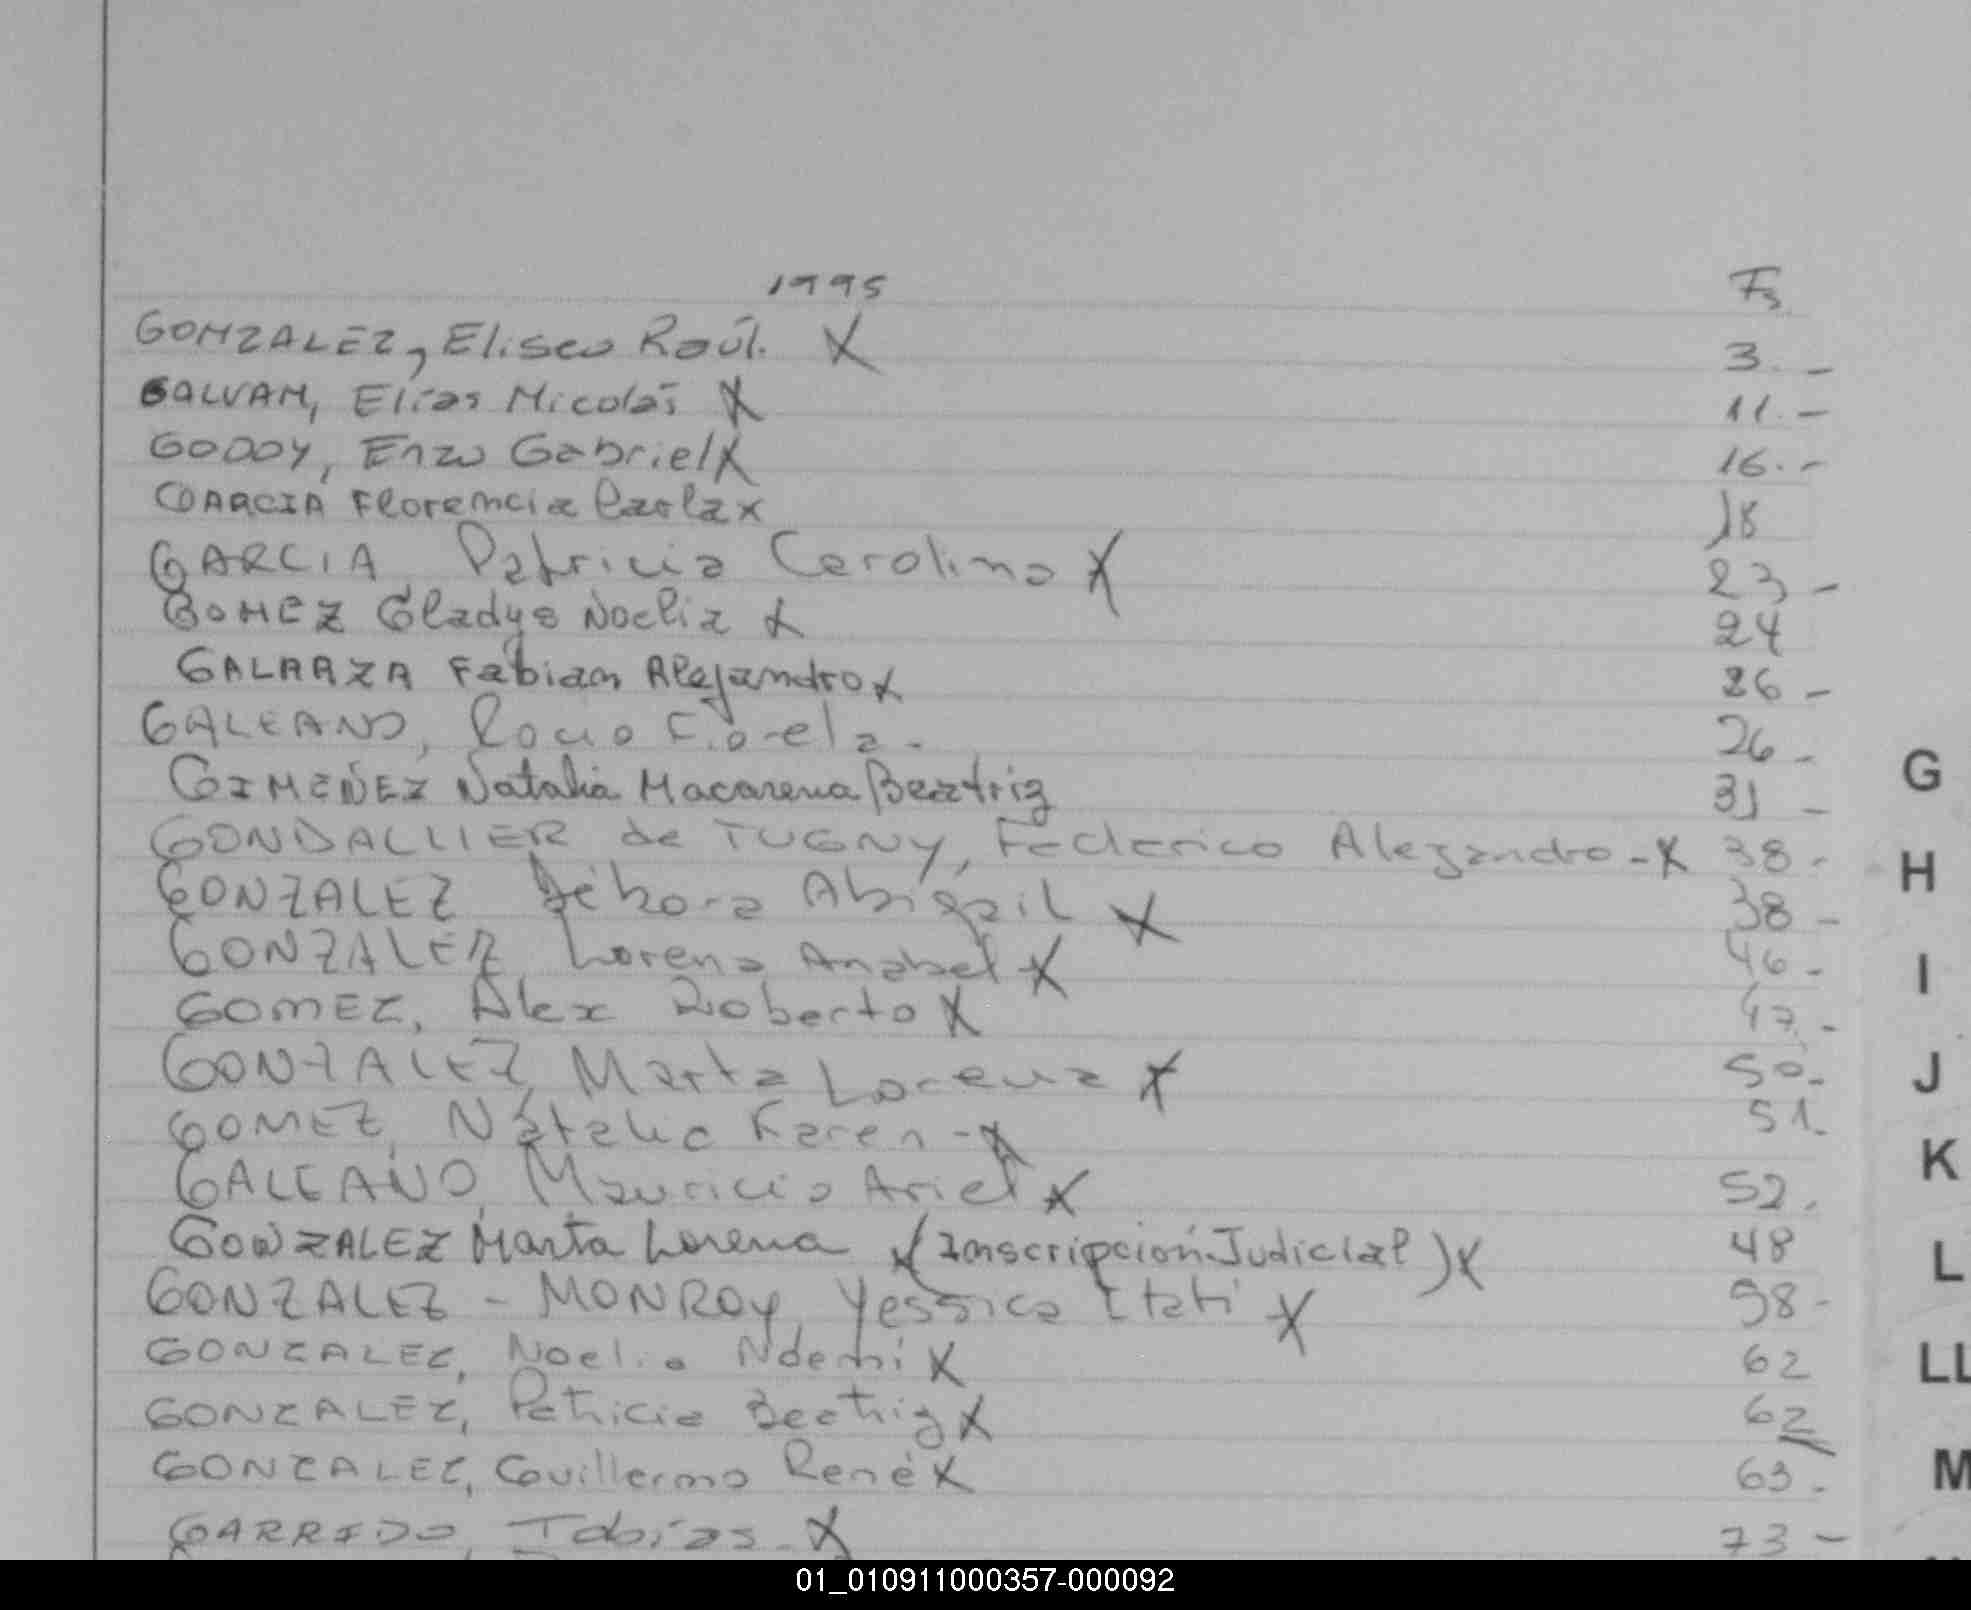 1995 Fs
GONZALEZ, Eliseo Raúl. X 3. -
GALVAN, Elías Nicolás X 11. -
GODOY, Enzo Gabriel X 16. -
GARCIA Florencia Carla x 18
GARCIA, Patricia Carolina X 23 -
GOMEZ Gladys Noelia X 24
GALARZA Fabian Alejandro x 26 -
GALEANO, Rocio Fiorela - 26 -
GIMENEZ Natalia Macarena Beatriz 31 -
GONDALLIER de TUGNY, Federico Alejandro - X 38 -
GONZALEZ Débora Abigail X 38 -
GONZALEZ, Lorena Anabel X 46 -
GOMEZ, Alex Roberto X 47. -
GONZALEZ, Marta Lorena X 50. -
GOMEZ, Natalia Karen - X 51.
GALEANO, Mauricio Ariel X 52.
GONZALEZ Marta Lorena X (Inscripción Judicial) X 48
GONZALEZ - MONROY, Yessica Itati X 58 -
GONZALEZ, Noelia Noemi X 62
GONZALEZ, Patricia Beatriz X 62
GONZALEZ, Guillermo René X 63.
GARRIDO, Tobías - X 73 -
G
H
I
J
K
L
LL
M
01_010911000357-000092